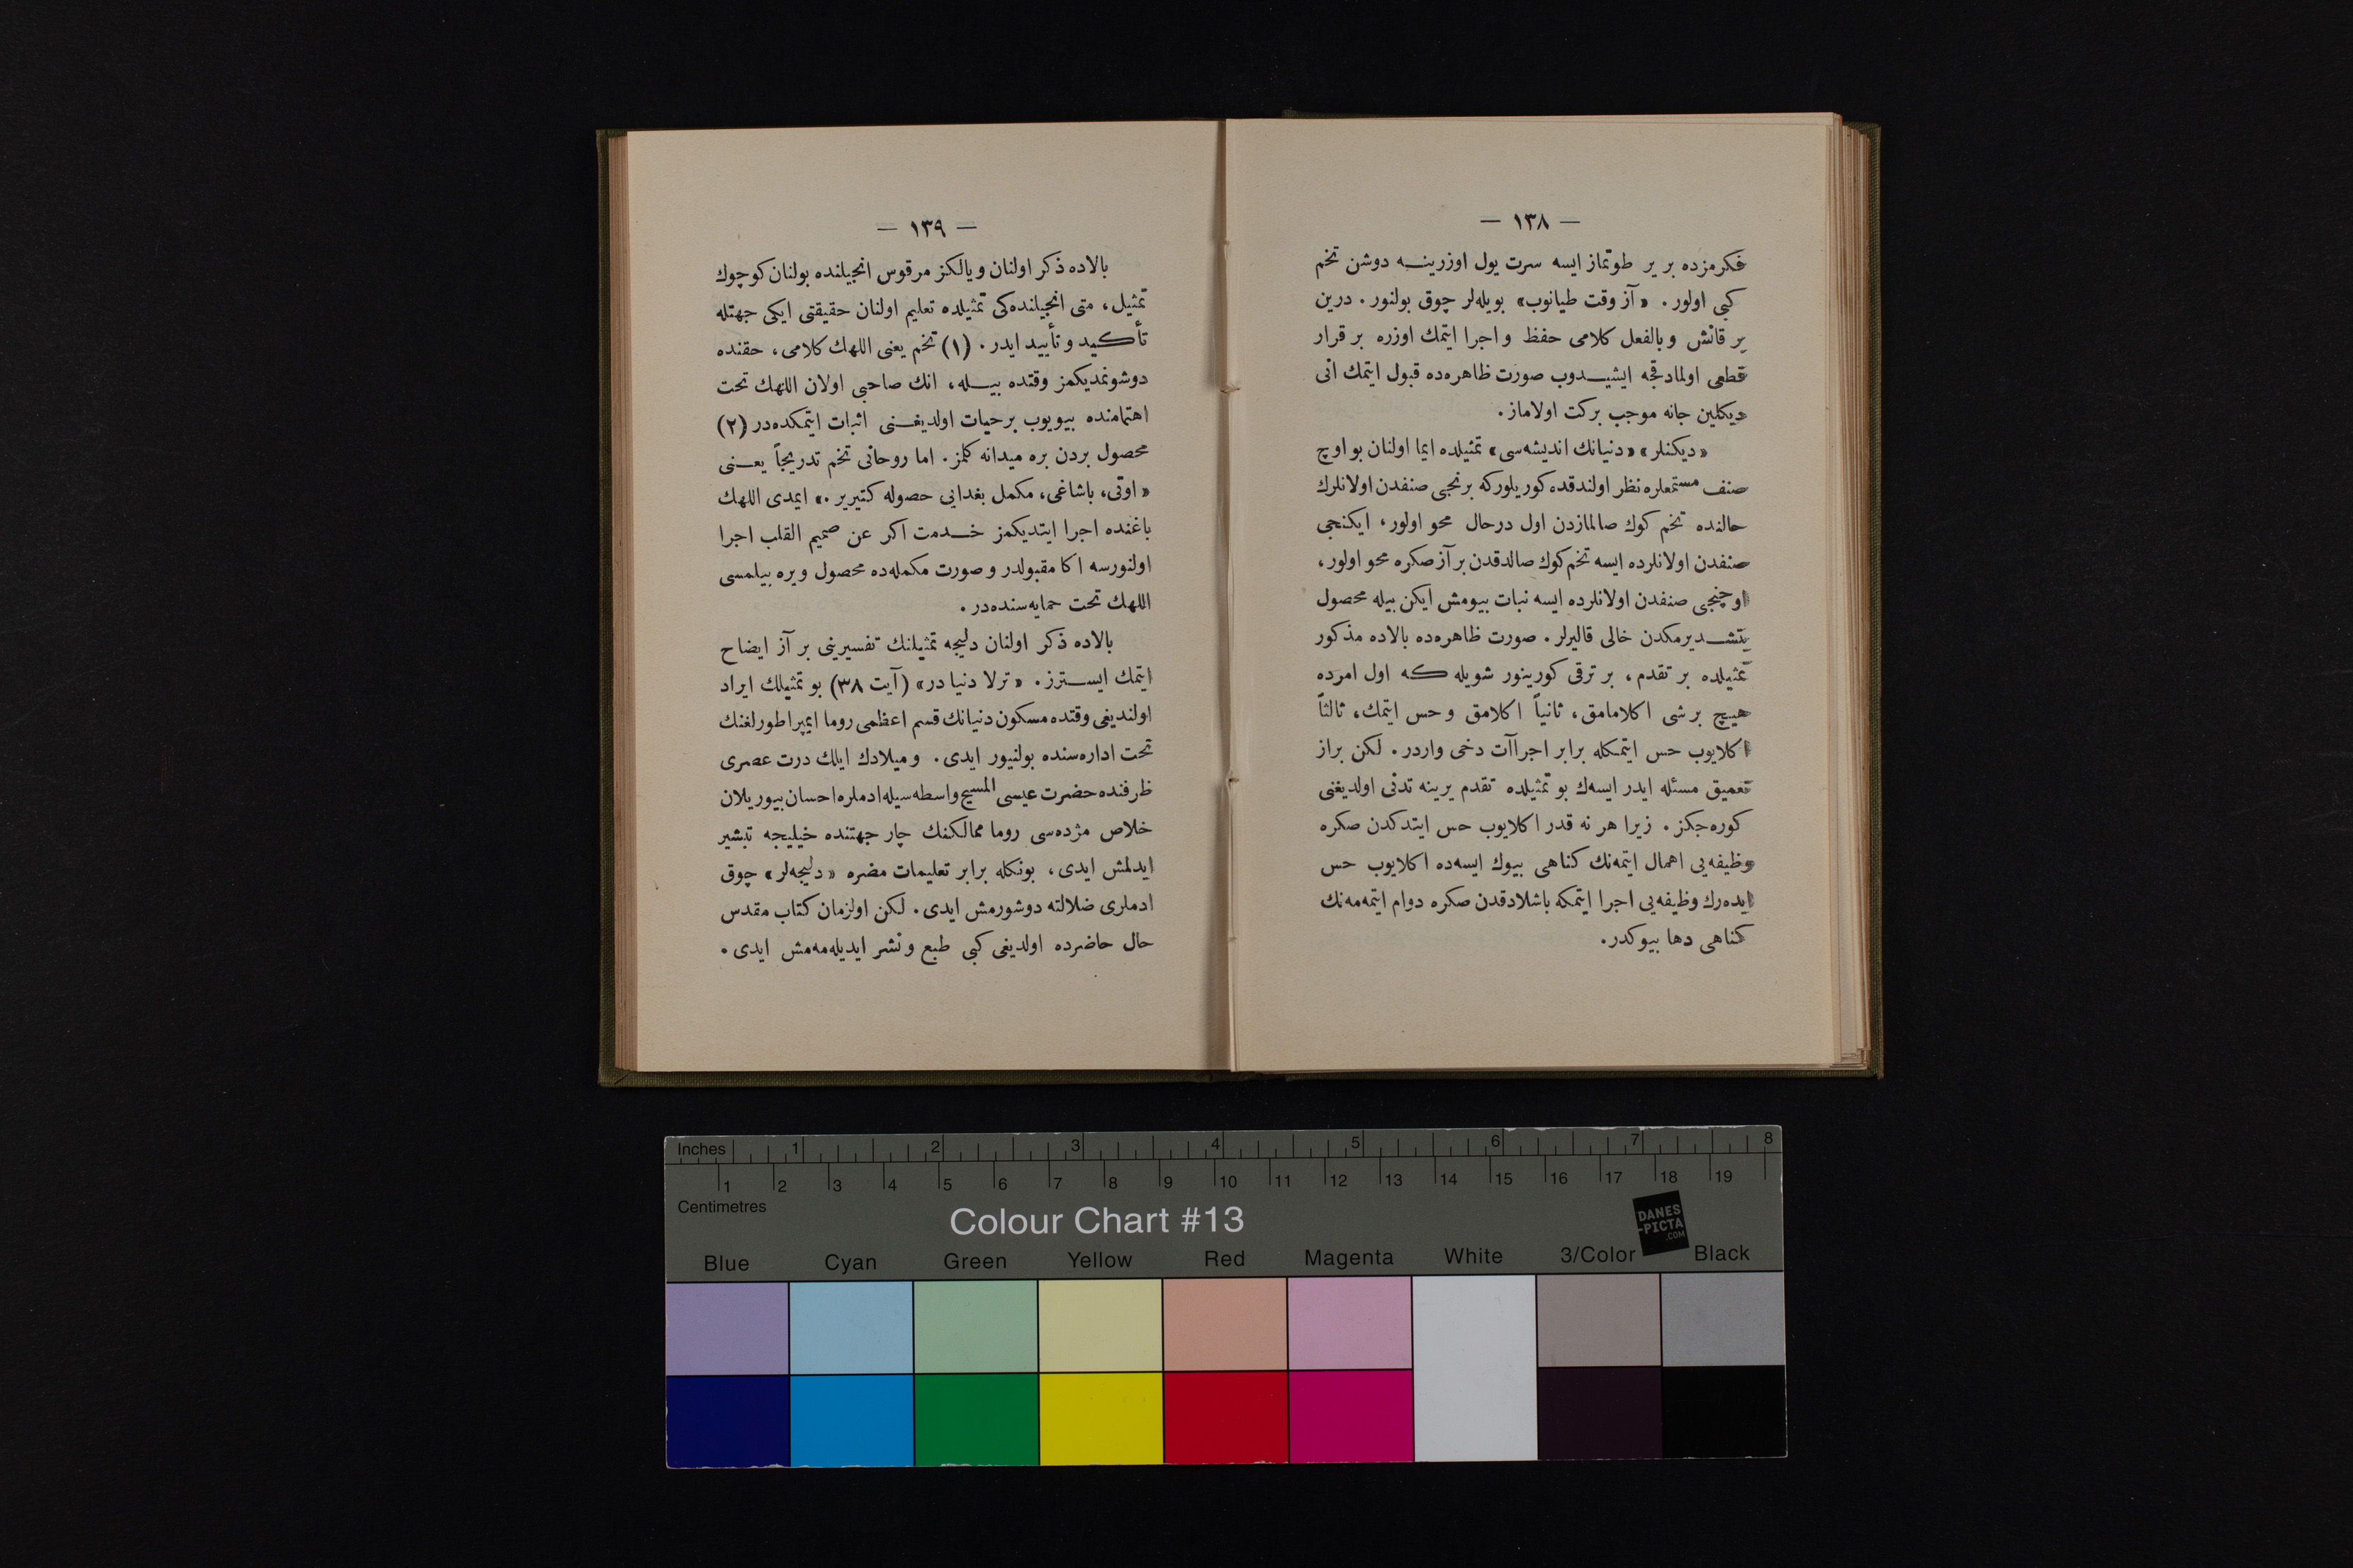 — ١٣٨ —
فكرمزده بر ير طوتماز ايسه سرت يول اوزرينــه دوشن تخم
كبى اولور. «آز وقت طيانوب» بويله‌لر چوق بولنور. درين
بر قانش وبالفعل كلامى حفظ واجرا ايتمك اوزره بر قرار
قطعى اولمادقجه ايشيــدوب صورت ظاهره‌ده قبول ايتمك انى
ديكلين جانه موجب بركت اولاماز.
«ديكنلر» «دنيانك انديشه‌سى» تمثيلده ايما اولنان بو اوچ
صنف مستمعلره نظر اولندقده كوريلوركه برنجى صنفدن اولانلرك
حالنده تخم كوك صالمازدن اول درحال محو اولور، ايكنجى
صنفدن اولانلرده ايسه تخم كوك صالدقدن بر آز صكره محو اولور،
اوچنجى صنفدن اولانلرده ايسه نبات بيومش ايكن بيله محصول
يتشــديرمكدن خالى قاليرلر. صورت ظاهره‌ده بالاده مذكور
تمثيلده بر تقدم، بر ترقى كورينور شويله كه اول امرده
هيچ بر شى اكلامامق، ثانياً اكلامق وحس ايتمك، ثالثاً
اكلايوب حس ايتمكله برابر اجراآت دخى واردر. لكن براز
تعميق مسئله ايدر ايسه‌ك بو تمثيلده تقدم يرينه تدنى اولديغنى
كوره‌جكز. زيرا هر نه قدر اكلايوب حس ايتدكدن صكره
وظيفه‌يى اهمال ايتمه‌نك كناهى بيوك ايسه‌ده اكلايوب حس
ايده‌رك وظيفه‌يى اجرا ايتمكه باشلادقدن صكره دوام ايتمه‌مه‌نك
كناهى دها بيوكدر.
— ١٣٩ —
بالاده ذكر اولنان ويالكز مرقوس انجيلنده بولنان كوچوك
تمثيل، متى انجيلنده‌كى تمثيلده تعليم اولنان حقيقتى ايكى جهتله
تأكيد وتأييد ايدر. (١) تخم يعنى اللهك كلامى، حقنده
دوشونمديكمز وقتده بيــله، انك صاحبى اولان اللهك تحت
اهتمامنده بيويوب برحيات اولديغــنى اثبات ايتمكده‌در (٢)
محصول بردن بره ميدانه كلمز. اما روحانى تخم تدريجاً يعــنى
«اوتى، باشاغى، مكمل بغدايى حصوله كتيرير.» ايمدى اللهك
باغنده اجرا ايتديكمز خــدمت اكر عن صميم القلب اجرا
اولنورسه اكا مقبولدر وصورت مكمله‌ده محصول ويره بيلمسى
اللهك تحت حمايه‌سنده‌در.
بالاده ذكر اولنان دليجه تمثيلنك تفسيرينى بر آز ايضاح
ايتمك ايســترز. «ترلا دنيا در» (آيت ٣٨) بو تمثيلك ايراد
اولنديغى وقتده مسكون دنيانك قسم اعظمى روما ايمپراطورلغنك
تحت اداره‌سنده بولنيور ايدى. وميلادك ايلك درت عصرى
ظرفنده حضرت عيسى المسيح واسطه‌سيله ادملره احسان بيوريلان
خلاص مژده‌سى روما ممالكنك چار جهتنده خيليجه تبشير
ايدلمش ايدى، بونكله برابر تعليمات مضره «دليجه‌لر» چوق
ادملرى ضلالته دوشورمش ايدى. لكن اولزمان كتاب مقدس
حال حاضرده اولديغى كبى طبع ونشر ايديله‌مه‌مش ايدى.
Inches 1 2 3 4 5 6 7 8
1 2 3 4 5 6 7 8 9 10 11 12 13 14 15 16 17 18 19
Centimetres
Colour Chart #13
DANES
-PICTA
.COM
Blue Cyan Green Yellow Red Magenta White 3/Color Black